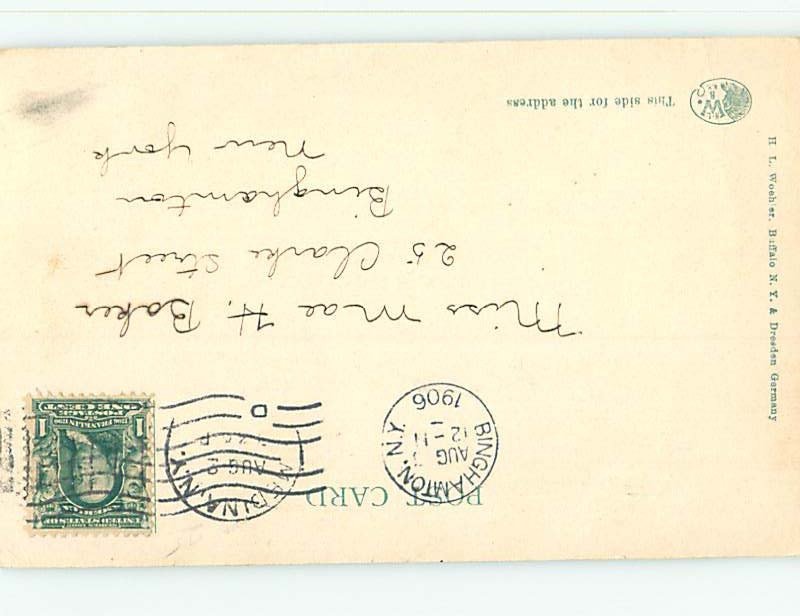 POST CARD
BINGHAMTON, N.Y.
AUG
12-
1906
MEDINA, N.Y.
AUG 2
D
UNITED STATES OF
AMERICA
1 1
POSTAGE
ONE CENT
Miss Mae H. Baker
25 Clarke Street
Binghamton
New York
This side for the address
H. L. Woehler, Buffalo N. Y. & Dresden Germany